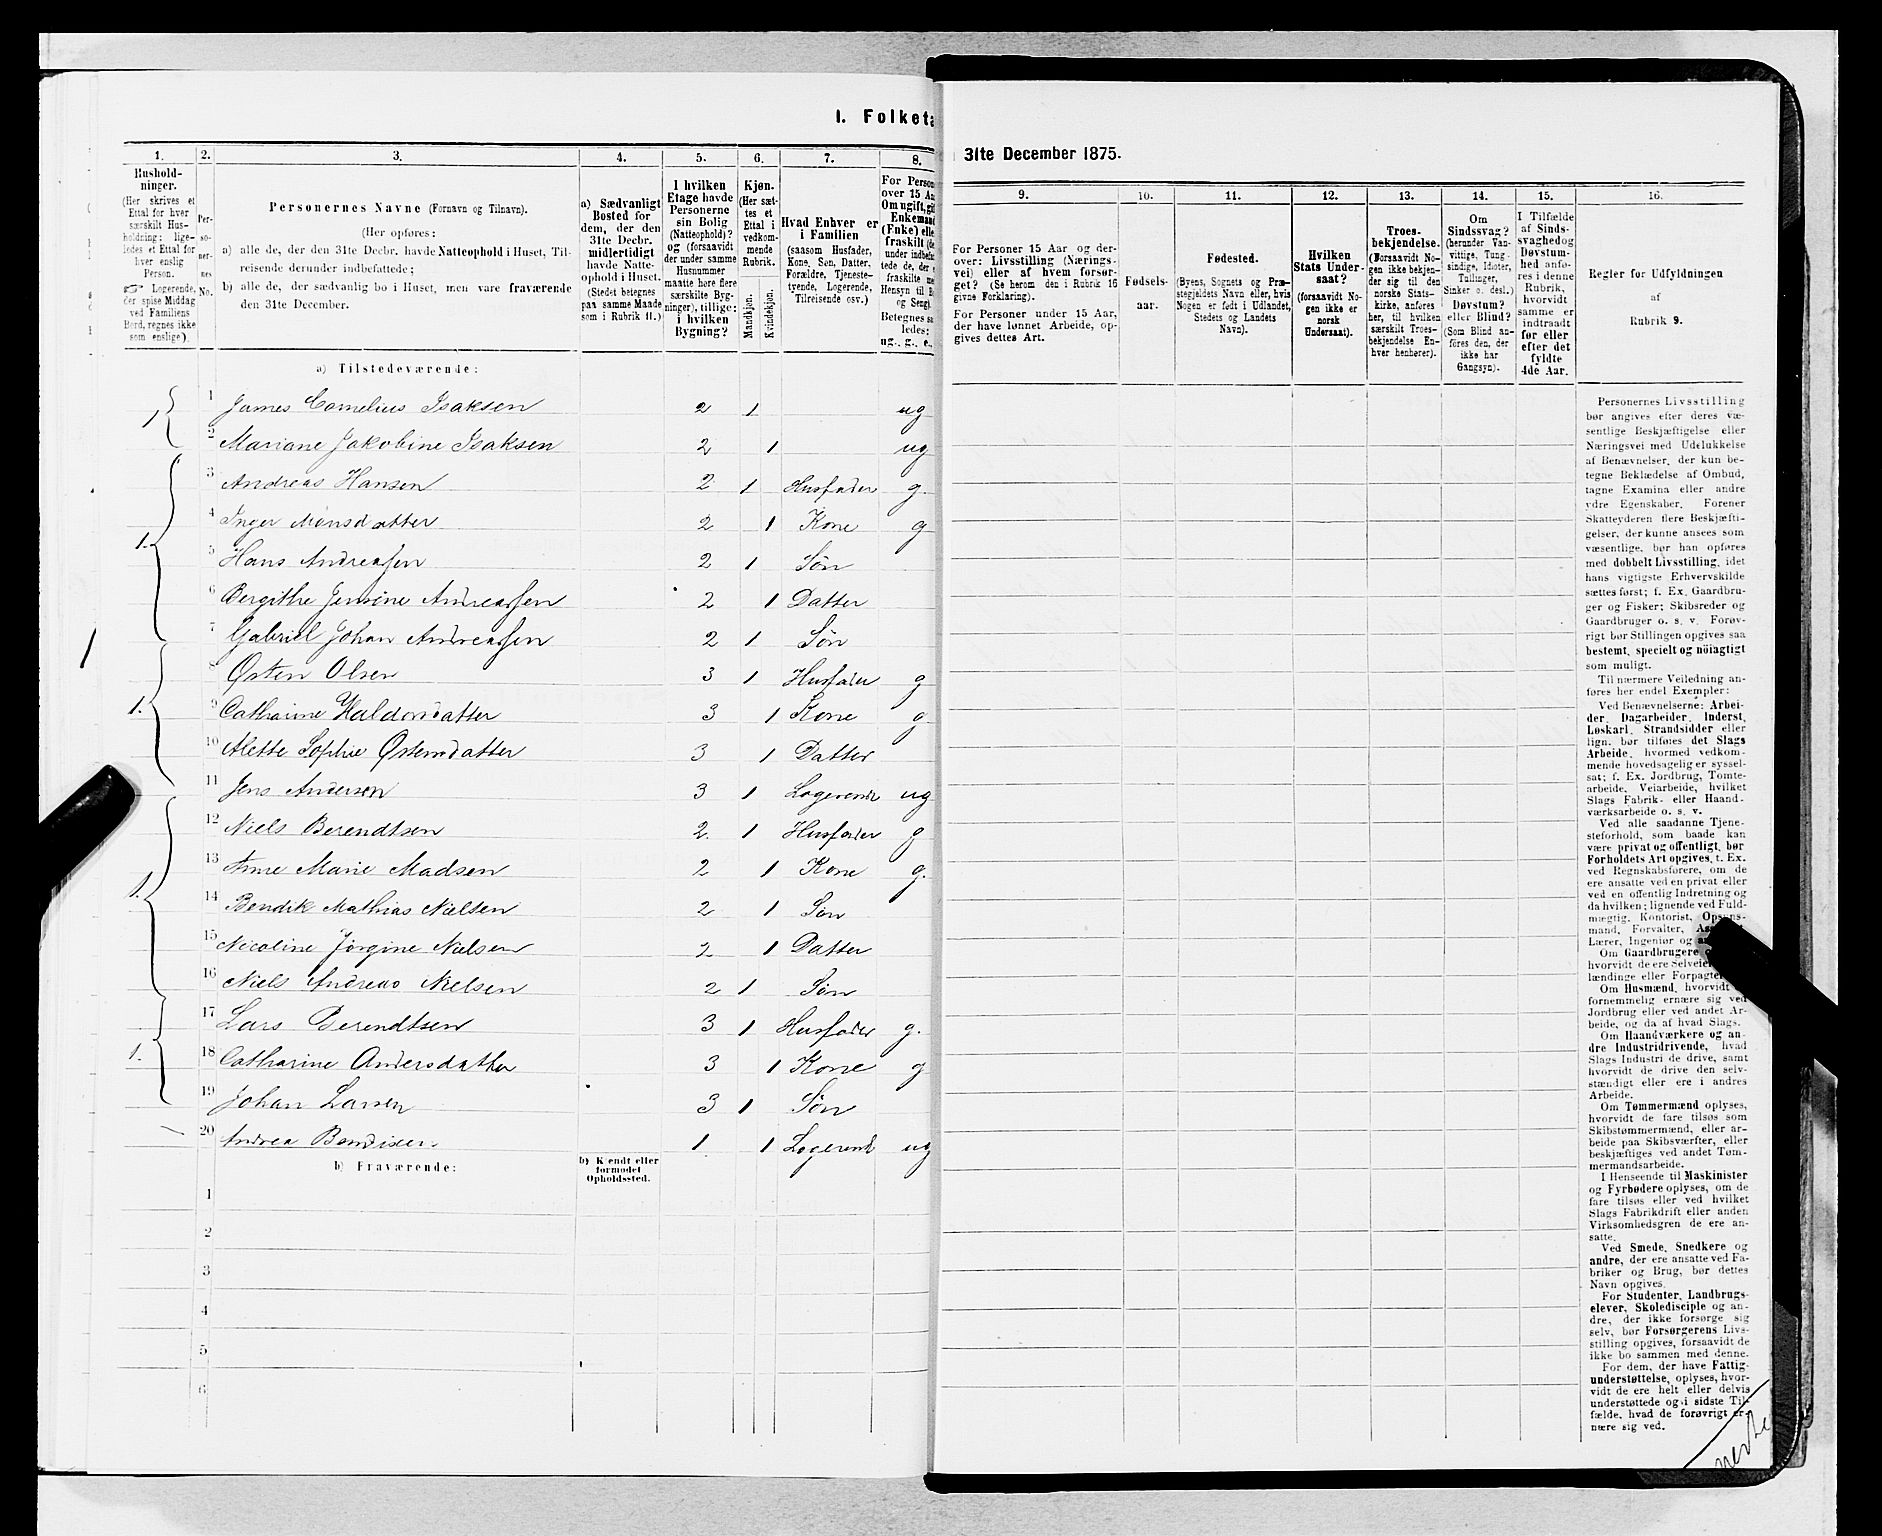 I. Folketæ
31te December 1875.
1. 2. 3. 4. 5. 6. 7. 8.
9. 10. 11. 12. 13. 14. 15. 16.
Hushold-
ninger.
(Her skrives et
Ettal for hver
særskilt Hus-
holdning; lige-
ledes et Ettal for
hver enslig
Person.
☞ Logerende,
der spise Middag
ved Familiens
Bord, regnes ikke
som enslige).
Per-
so-
ner-
nes
No.
Personernes Navne (Fornavn og Tilnavn).
(Her opføres:
a) alle de, der den 31te Decbr. havde Natteophold i Huset, Til-
reisende derunder indbefattede;
b) alle de, der sædvanlig bo i Huset, men vare fraværende
den 31te December.
a) Sædvanligt
Bosted for
dem, der den
31te Decbr.
midlertidigt
havde Natte-
ophold i Huset.
(Stedet betegnes
paa samme Maade
som i Rubrik 11.)
I hvilken
Etage havde
Personerne
sin Bolig
(Natteophold)?
og (forsaavidt
der under samme
Husnummer
maatte høre flere
særskilte Byg-
ninger), tillige:
i hvilken
Bygning?
Kjøn.
(Her sæt-
tes et
Ettal i
vedkom-
mende
Rubrik.
Mandkjøn.
Kvindekjøn.
Hvad Enhver er
i Familien
(saasom Husfader,
Kone, Søn, Datter,
Forældre, Tjeneste-
tyende, Logerende,
Tilreisende osv.)
For Person
over 15 Aa
Om ugift, gif
Enkemand
(Enke) elle
fraskilt (de
under indbefa
tede de, der e
fraskilte me
Hensyn til B
og Seng).
Betegnes sa
ledes:
ug., g., e.,
For Personer 15 Aar og der-
over: Livsstilling (Nærings-
vei) eller af hvem forsør-
get? (Se herom den i Rubrik 16
givne Forklaring).
For Personer under 15 Aar,
der have lønnet Arbeide, op-
gives dettes Art.
Fødsels-
aar.
Fødested.
(Byens, Sognets og Præ-
stegjeldets Navn eller, hvis
Nogen er født i Udlandet,
Stedets og Landets
Navn).
Hvilken
Stats Under-
saat?
(forsaavidt No-
gen ikke er
norsk
Undersaat).
Troes-
bekjendelse.
(Forsaavidt No-
gen ikke bekjen-
der sig til den
norske Stats-
kirke, anføres
her, til hvilken
særskilt Troes-
bekjendelse En-
hver henhører).
Om
Sindssvag?
(herunder Van-
vittige, Tung-
sindige, Idioter,
Tullinger,
Sinker o. desl.)
Døvstum?
eller Blind?
(Som Blind an-
føres den, der
ikke har
Gangsyn).
I Tilfælde
af Sinds-
svaghed og
Døvstum-
hed anfø-
res i denne
Rubrik,
hvorvidt
samme er
indtraadt
før eller
efter det
fyldte
4de Aar.
Regler for Udfyldningen
af
Rubrik 9.
a) Tilstedeværende:
1. 1 James Cornelius Isaksen 2 1 ug
2 Mariane Jakobine Isaksen 2 1 ug
3 Andreas Hansen 2 1 Husfader g.
4 Inger Mønsdatter 2 1 Kone g
1. 5 Hans Andreassen 2 1 Søn
6 Bergithe Jensine Andreassen 2 1 Datter
7 Gabriel Johan Andreassen 2 1 Søn
8 Østen Olsen 3 1 Husfader g
1. 9 Catharine Haldorsdatter 3 1 Kone g
10 Alette Sophie Østensdatter 3 1 Datter
11 Jens Andersen 3 1 Logerende ug
12 Niels Berendtsen 2. 1 Husfader g
13 Anne Marie Madsen 2 1 Kone g.
1. 14 Bendik Mathias Nielsen 2 1 Søn
15 Nicoline Jørgine Nielsen 2 1 Datter
16 Niels Andreas Nielsen 2 1 Søn
17 Lars Berendtsen 3 1 Husfader g.
1. 18 Catharine Andersdatter 3 1 Kone g
19 Johan Larsen 3 1 Søn
20 Andrea Bendixen. 1. 1 Logerende ug
b) Fraværende:
b) Kjendt eller
formodet
Opholdssted.
1
2
3
4
5
6
Personernes Livsstilling
bør angives efter deres væ-
sentlige Beskjæftigelse eller
Næringsvei med Udelukkelse
af Benævnelser, der kun be-
tegne Beklædelse af Ombud,
tagne Examina eller andre
ydre Egenskaber. Forener
Skatteyderen flere Beskjæfti-
gelser, der kunne ansees som
væsentlige, bør han opføres
med dobbelt Livsstilling, idet
hans vigtigste Erhvervskilde
sættes først; f. Ex. Gaardbru-
ger og Fisker; Skibsreder og
Gaardbruger o. s. v. Forøv-
rigt bør Stillingen opgives saa
bestemt, specielt og nöiagtigt
som muligt.
Til nærmere Veiledning an-
føres her endel Exempler:
Ved Benævnelserne: Arbei-
der, Dagarbeider, Inderst,
Løskarl, Strandsidder eller
lign. bør tilføies det Slags
Arbeide, hvormed vedkom-
mende hovedsagelig er syssel-
sat; f. Ex. Jordbrug, Tomte-
arbeide, Veiarbeide, hvilket
Slags Fabrik- eller Haand-
værksarbeide o. s. v.
Ved alle saadanne Tjene-
steforhold, som baade kan
være privat og offentligt, bør
Forholdets Art opgives, t. Ex.
ved Regnskabsførere, om de
ere ansatte ved en privat eller
ved en offentlig Indretning og
da hvilken; lignende ved Fuld-
mægtig, Kontorist, Opsyns-
mand, Forvalter,
Lærer, Ingeniør og
Om Gaardbrugere
hvorvidt de ere Selveiere
lændinge eller Forpagtere
Om Husmænd, hvorvidt
fornemmelig ernære sig ved
Jordbrug eller ved andet Ar-
beide, og da af hvad Slags.
Om Haandværkere og an-
dre Industridrivende, hvad
Slags Industri de drive, samt
hvorvidt de drive den selv-
stændigt eller ere i andres
Arbeide.
Om Tømmermænd oplyses,
hvorvidt de fare tilsøs som
Skibstømmermænd, eller ar-
beide paa Skibsværfter, eller
beskjæftiges ved andet Tøm-
mermandsarbeide.
I Henseende til Maskinister
og Fyrbødere oplyses, om de
fare tilsøs eller ved hvilket
Slags Fabrikdrift eller anden
Virksomhedsgren de ere an-
satte.
Ved Smede, Snedkere og
andre, der ere ansatte ved Fa-
briker og Brug, bør dettes
Navn opgives.
For Studenter, Landbrugs-
elever, Skoledisciple og an-
dre, der ikke forsørge sig
selv, bør Forsørgerens Livs-
stilling opgives, forsaavidt de
ikke bo sammen med denne.
For dem, der have Fattig-
understøttelse, oplyses, hvor-
vidt de ere helt eller delvis
understøttede og i sidste Til-
fælde, hvad de forøvrigt er-
nære sig ved.